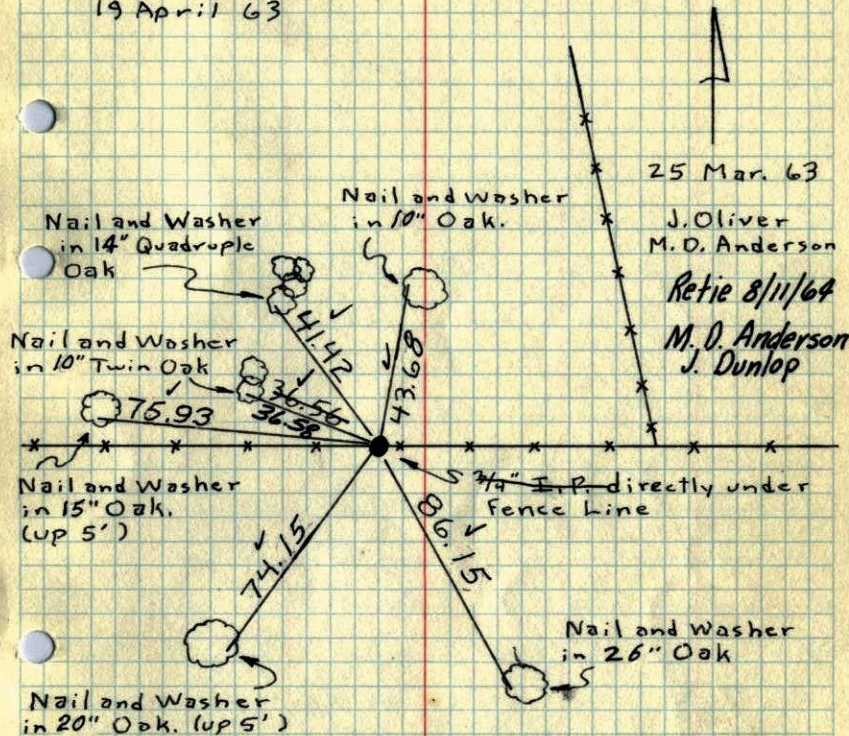 19 April 63
25 Mar. 63
J. Oliver
M. D. Anderson
Retie 8/11/64
M. D. Anderson
J. Dunlop
Nail and Washer
in 10" Oak.
Nail and Washer
in 14" Quadruple
Oak
41.42
43.68
Nail and Washer
in 10" Twin Oak
36.56
36.58
75.93
Nail and Washer
in 15" Oak.
(up 5')
3/4" I.P. directly under
Fence Line
86.15
74.15
Nail and Washer
in 26" Oak
Nail and Washer
in 20" Oak. (up 5')